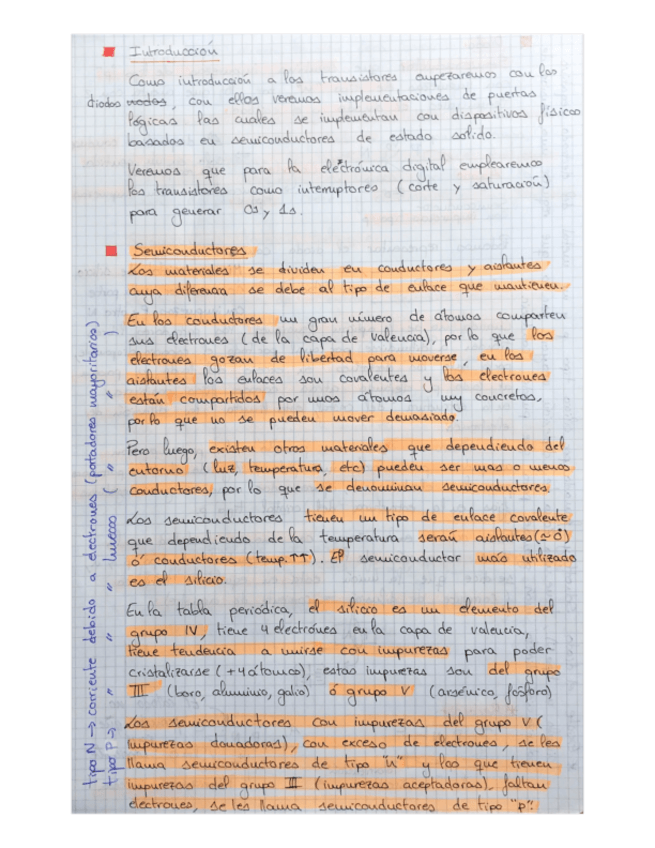 Introducción
Como introducción a los transistores empezaremos con los
diodos, con ellos veremos implementaciones de puertas
lógicas las cuales se implementan con dispositivos físicos
basados en semiconductores de estado solido.
Veremos que para la electrónica digital emplearemos
los transistores como interruptores (corte y saturación)
para generar 0s y 1s.
Semiconductores
Los materiales se dividen en conductores y aislantes
cuya diferencia se debe al tipo de enlace que mantienen.
En los conductores un gran número de átomos comparten
sus electrones (de la capa de valencia), por lo que los
electrones gozan de libertad para moverse, en los
aislantes los enlaces son covalentes y los electrones
están compartidos por unos átomos muy concretos,
por lo que no se pueden mover demasiado.
Pero luego, existen otros materiales que dependiendo del
entorno (luz, temperatura, etc) pueden ser mas o menos
conductores, por lo que se denominan semiconductores.
Los semiconductores tienen un tipo de enlace covalente
que dependiendo de la temperatura serán aislantes (≈0)
ó conductores (temp.↑↑). El semiconductor más utilizado
es el silicio.
En la tabla periódica, el silicio es un elemento del
grupo IV, tiene 4 electrónes en la capa de valencia,
tiene tendencia a unirse con impurezas para poder
cristalizarse (+4 átomos), estas impurezas son del grupo
III (boro, aluminio, galio) ó grupo V (arsénico, fósforo)
Los semiconductores con impurezas del grupo V (
impurezas donadoras), con exceso de electrones, se les
llama semiconductores de tipo "n" y los que tienen
impurezas del grupo III (impurezas aceptadoras), faltan
electrones, se les llama semiconductores de tipo "p".
tipo N → corriente debido a electrones (portadores mayoritarios)
tipo P → " " " huecos ( " " )